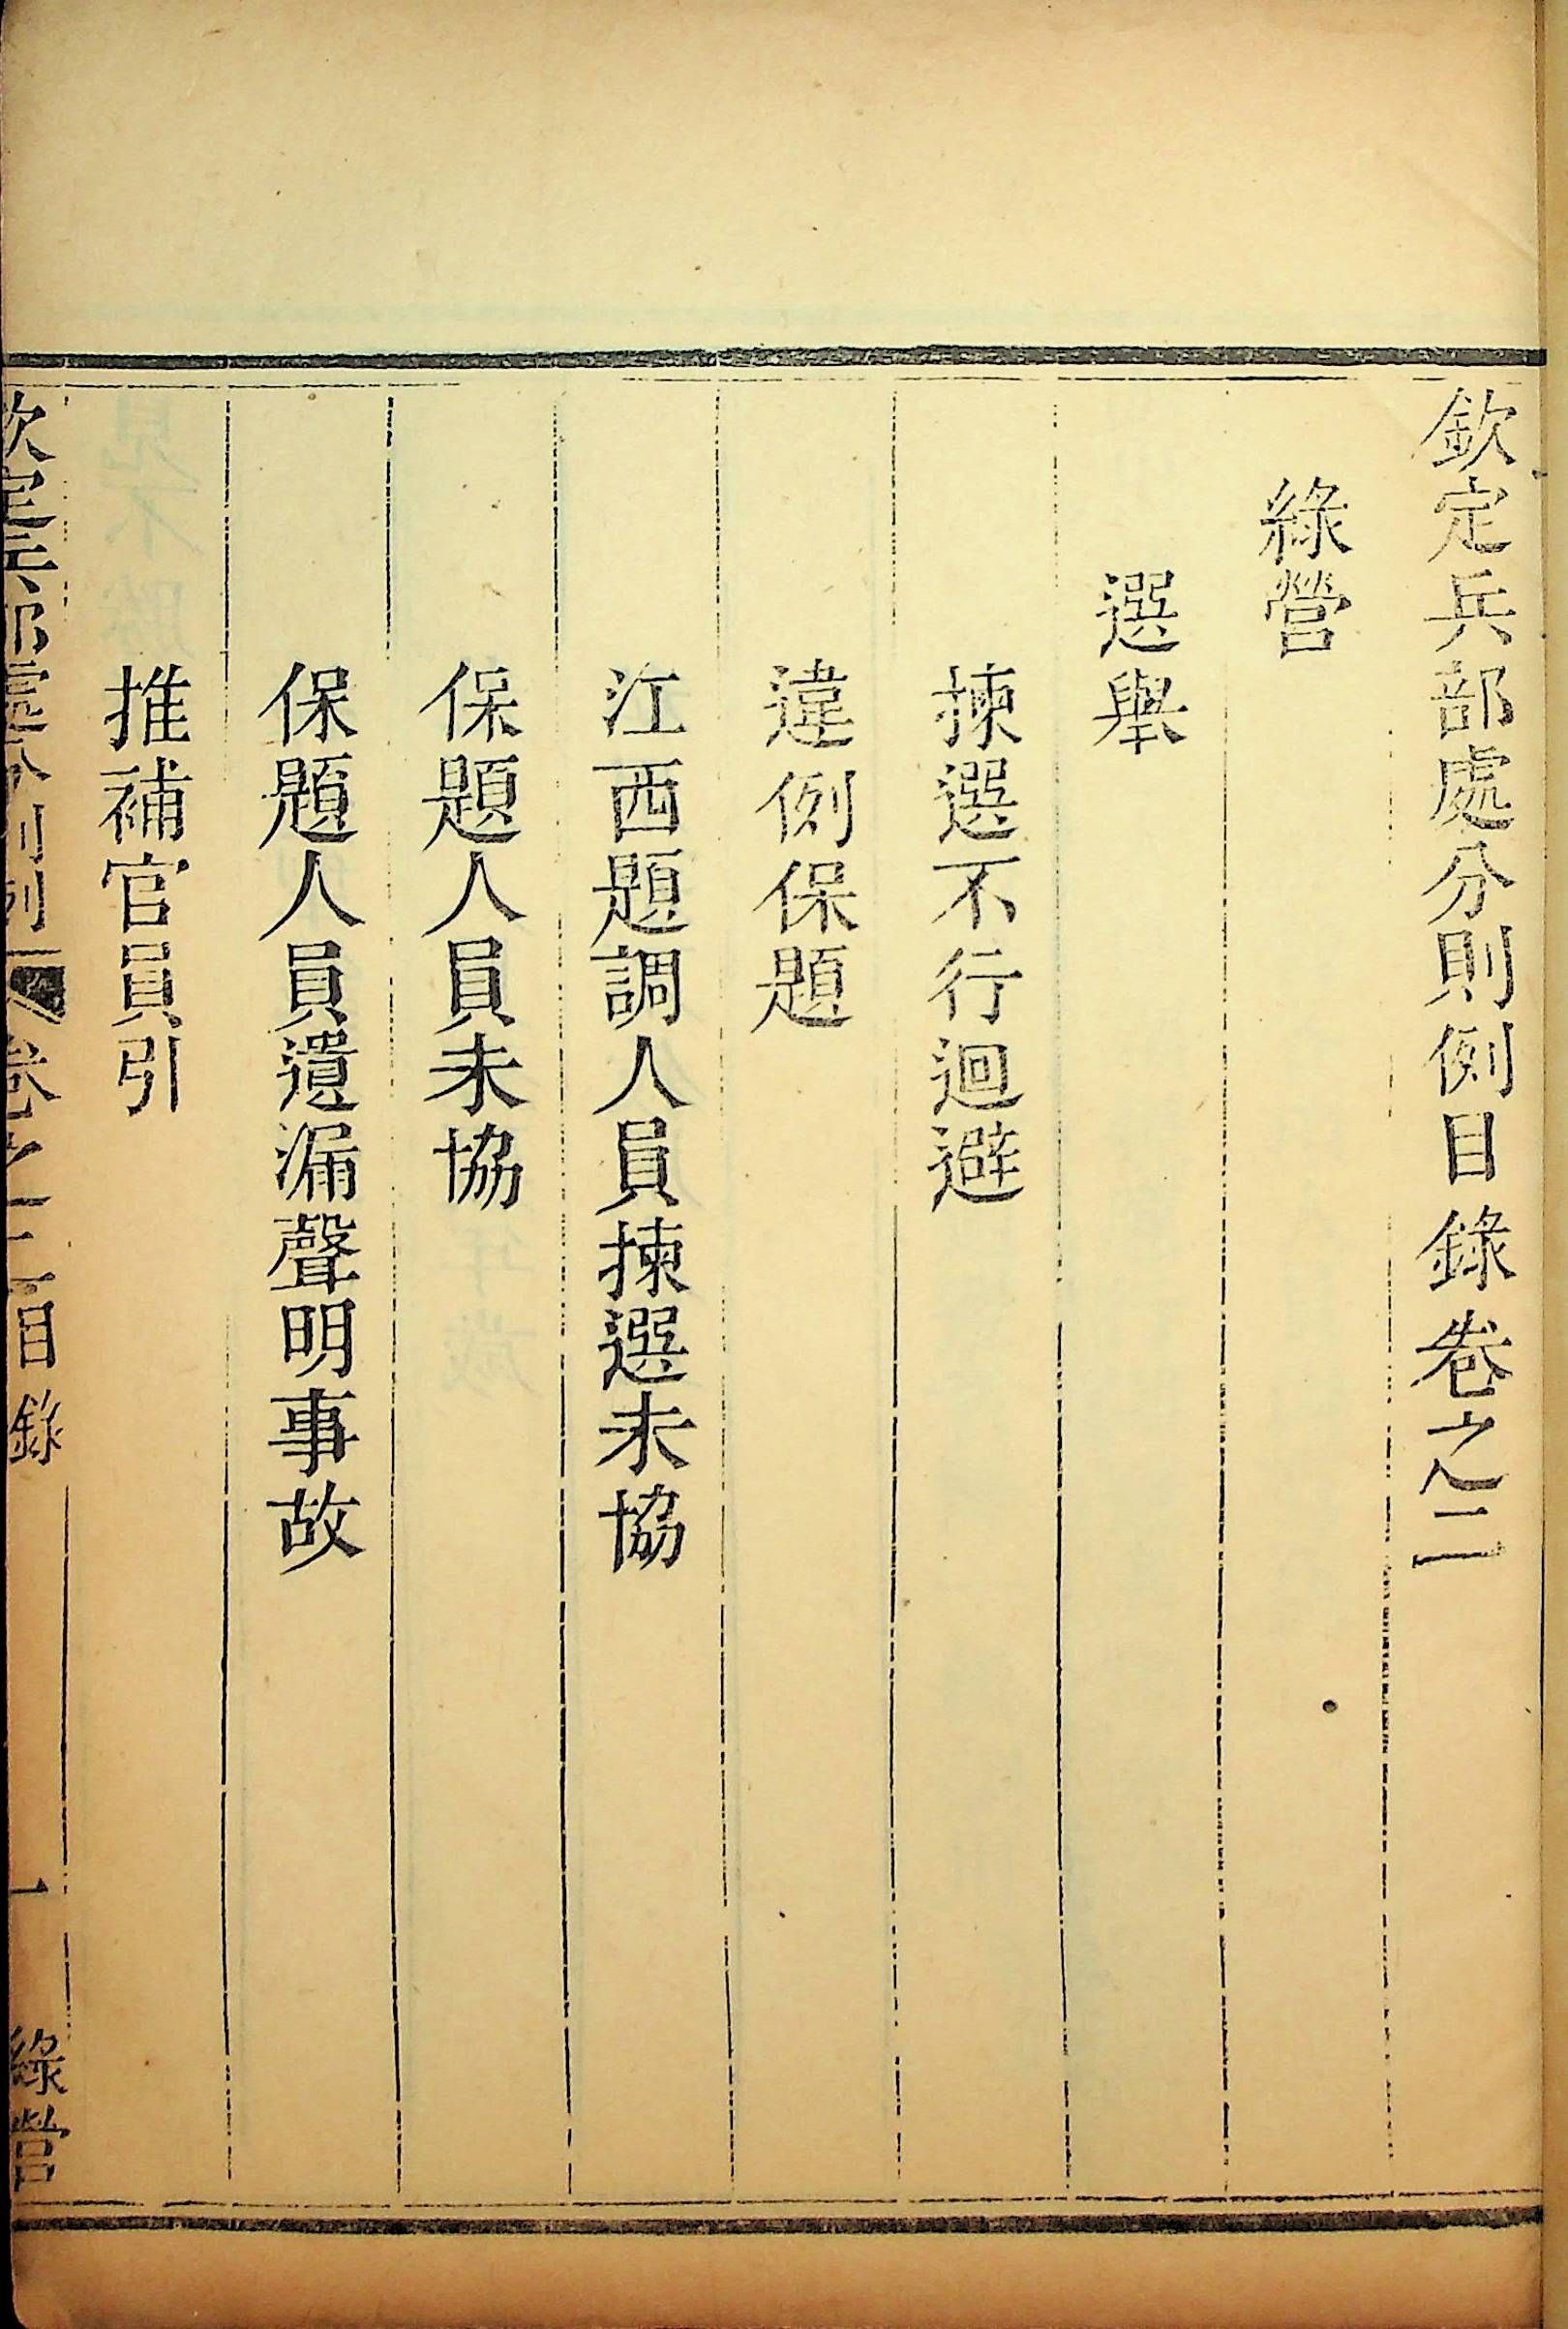 欽定兵部處分則例目錄卷之二
綠營
選舉
揀選不行迴避
違例保題
江西題調人員揀選未協
保題人員未協
保題人員遺漏聲明事故
推補官員引
欽定兵部處分則例 卷之二目錄 一 綠營